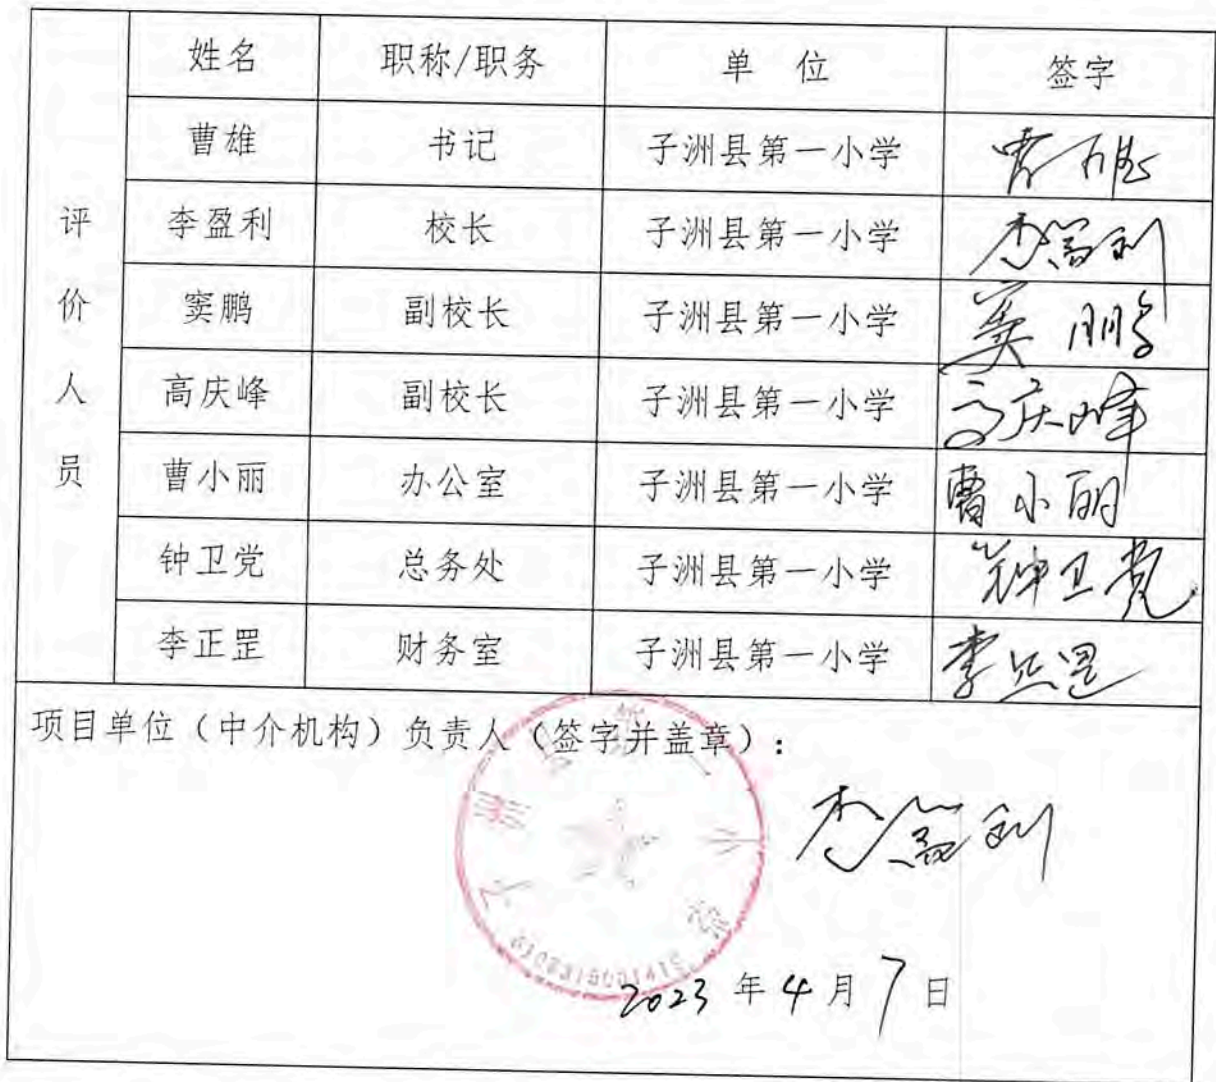 姓名 职称/职务 单 位 签字
曹雄 书记 子洲县第一小学 曹雄
评 李盈利 校长 子洲县第一小学 李盈利
价 窦鹏 副校长 子洲县第一小学 窦鹏
人 高庆峰 副校长 子洲县第一小学 高庆峰
员 曹小丽 办公室 子洲县第一小学 曹小丽
钟卫党 总务处 子洲县第一小学 钟卫党
李正罡 财务室 子洲县第一小学 李正罡
项目单位（中介机构）负责人（签字并盖章）：
李盈利
2023 年 4 月 7 日